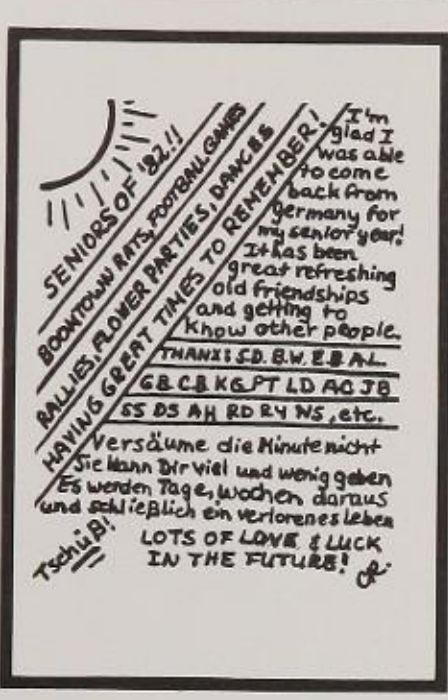 SENIORS OF '82!!
BOOMTOWN RATS, FOOTBALL GAMES
RALLIES, FLOWER PARTIES, DANCES
HAVING GREAT TIMES TO REMEMBER!
I'm
glad I
was able
to come
back from
germany for
my senior year!
It has been
great refreshing
old friendships
and getting to
know other people.
THANX: S.D. B.W. E.B. A.L.
GB CB KG PT LD AG JB
SS DS AH RD RY NS, etc.
Versäume die Minute nicht
Sie kann Dir viel und wenig geben
Es werden Tage, wochen daraus
und schließlich ein verlorenes Leben
Tschüß!
LOTS OF LOVE & LUCK
IN THE FUTURE!